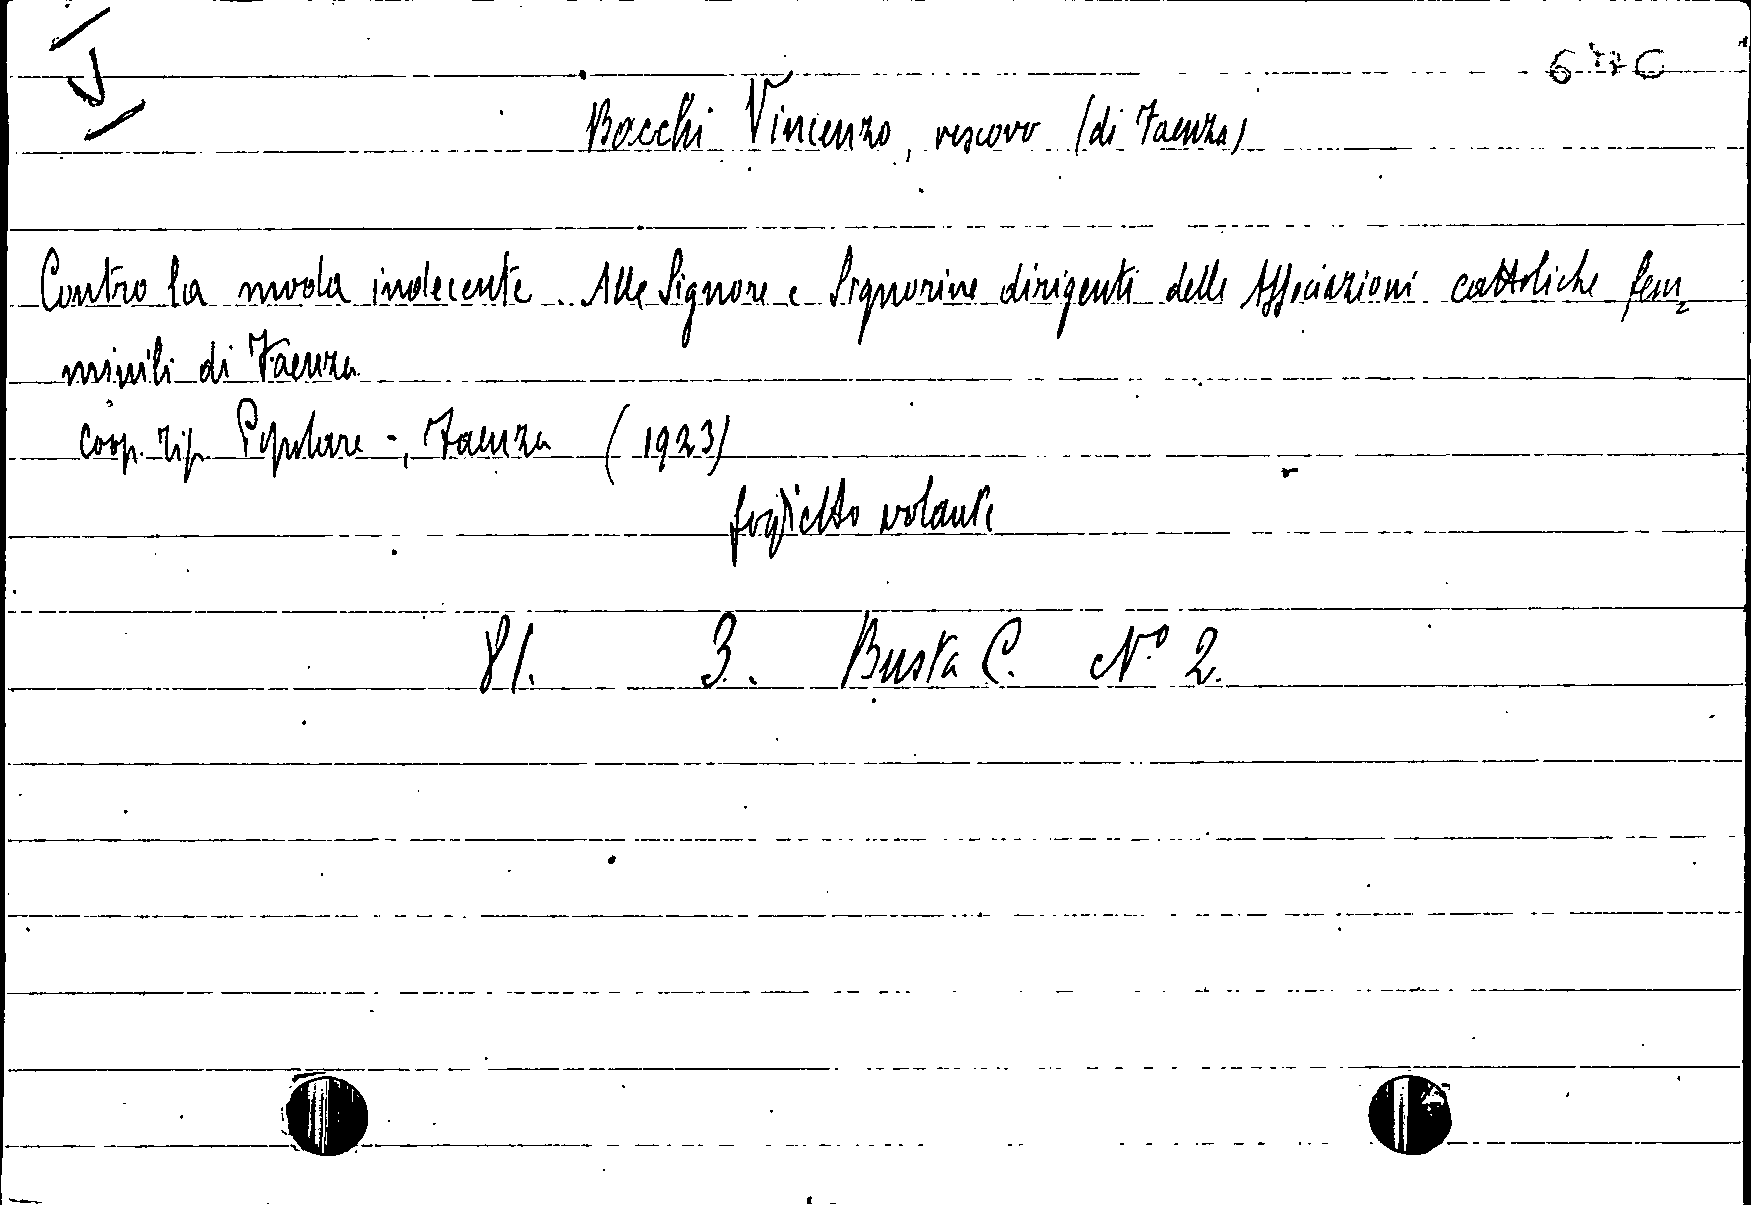 Bacchi Vincenzo, vescovo (di Faenza)
Contro la moda indecente. Alle Signore e Signorine dirigenti delle Associazioni cattoliche fem-
minili di Faenza
coop. tip. Popolare -, Faenza (1923)
foglietto volante
81. 3. Busta C. N.º 2.